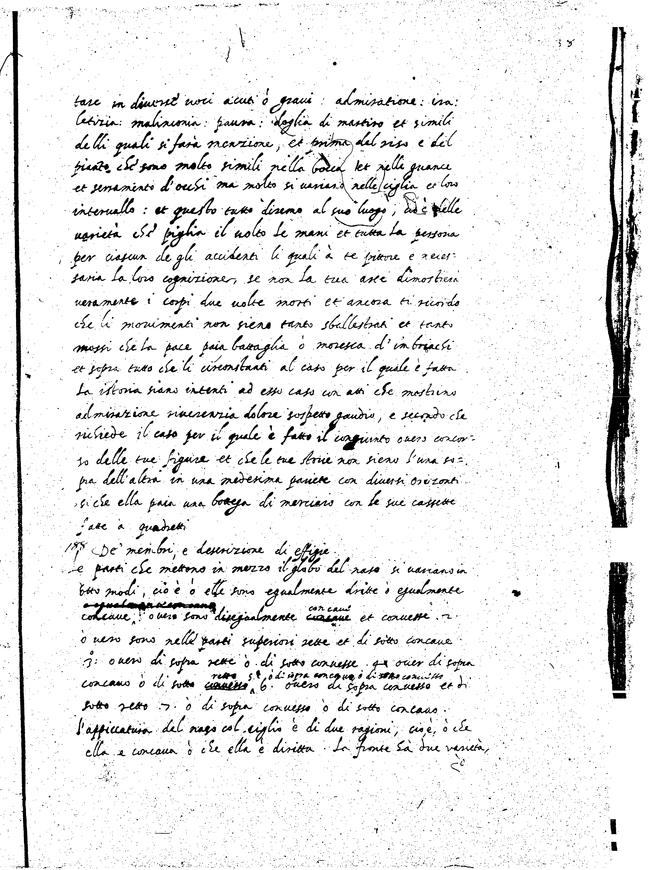 tare in diverse voci acuti ò gravi : admiratione : ira:
letizia: malinconia: paura: doglia di martiro et simili
delli quali si farà menzione, et prima del riso e del
pianto che sono molto simili nella bocca et nelle guance
et serramento d'occhi ma molto si variano nelle ciglia et loro
intervallo : et questo tutto diremo al suo luogo, ciò è delle
varietà che piglia il volto le mani et tutta la persona
per ciascun de gli accidenti li quali à te pittore è neces-
saria la loro cognizione, se non la tua arte dimosterra
veramente i corpi due volte morti et ancora ti ricordo
che li movimenti non sieno tanto sballestrati et tanto
mossi che la pace paia battaglia ò moresca d'imbriachi
et sopra tutto che li circonstanti al caso per il quale è fatta
la istoria siano intenti ad esso caso con atti che mostrino
admirazione riverenzia dolore sospetto gaudio, e secondo che
richiede il caso per il quale è fatto il congiunto overo concor-
so delle tue figure et che le tue storie non sieno l'una so-
pra dell'altra in una medesima pariete con diversi orizonti
siche ella paia una bottega di merciaro con le sue cassette
fatte à quadretti
188 De' membri, e descrizione di effigie.
e parti che mettono in mezzo il globo del naso si variano in
otto modi, cio è ò elle sono egualmente dritte ò egualmente
concave, overo sono disegualmente concavi et convesse. 2
ò vero sono nelle parti superiori rette et di sotto concave
3: overo di sopra rette ò di sotto convesse. 4 over di sopra
retto 5 ò di sopra concavo ò di sotto convesso
concavo ò di sotto convesso 6. overo di sopra convesso et di
sotto retto 7. ò di sopra convesso ò di sotto concavo.
l'appiccatura del naso col ciglio è di due ragioni, cioè, ò che
ella e concava ò che ella è diritta. La fronte hà due varietà,